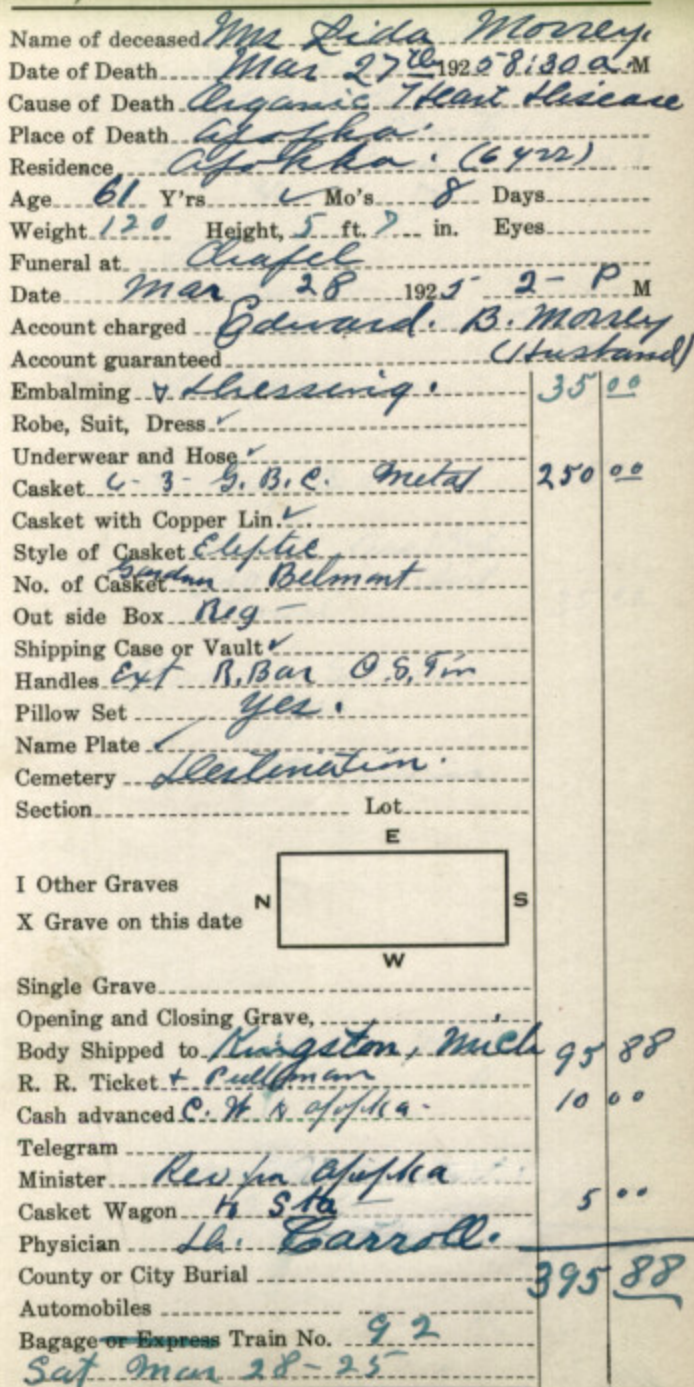 Name of deceased Mrs Lida Morrey.
Date of Death Mar 27th 1925 8:30 a M
Cause of Death Organic Heart Disease
Place of Death Apopka.
Residence Apopka. (6 yrs)
Age 61 Y'rs ✓ Mo's 8 Days
Weight 120 Height, 5 ft. 7 in. Eyes
Funeral at Chapel
Date Mar 28 1925 2 - P M
Account charged Edward. B. Morrey
Account guaranteed (Husband)
Embalming & Dressing. 35 00
Robe, Suit, Dress ✓
Underwear and Hose ✓
Casket 6-3- G. B. C. Metal 250 00
Casket with Copper Lin. ✓
Style of Casket Eliptic
No. of Casket Belmont
Out side Box Reg -
Shipping Case or Vault ✓
Handles Ext R. Bar O.S. Tin
Pillow Set yes.
Name Plate ✓
Cemetery Destination.
Section Lot
E
I Other Graves
N S
X Grave on this date
W
Single Grave
Opening and Closing Grave,
Body Shipped to Kingston, Mich 95 88
R. R. Ticket + Pullman
Cash advanced C. W to Apopka - 10 00
Telegram
Minister Rev fm Apopka
Casket Wagon to Sta 5 00
Physician Dr. Carroll.
County or City Burial 395 88
Automobiles
Bagage or Express Train No. 92
Sat Mar 28-25